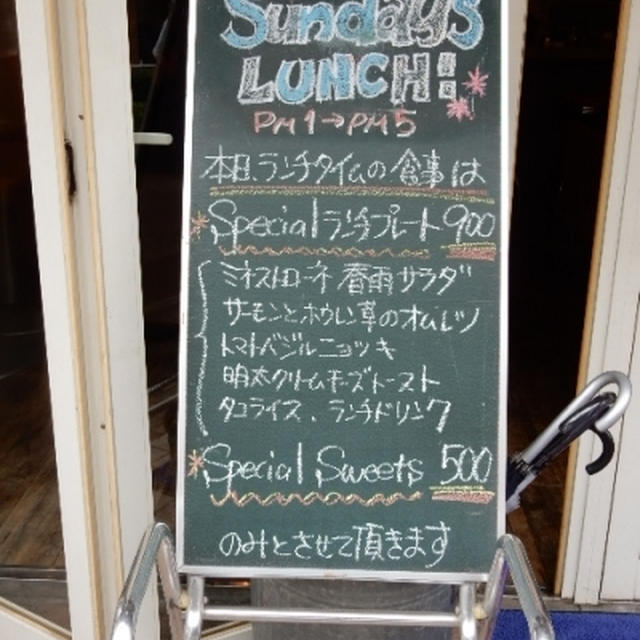 Sundays
LUNCH!
PM1→PM5
本日、ランチタイムの食事は
*Specialランチプレート 900
ミネストローネ 春雨サラダ
サーモンとホウレン草のオムレツ
トマトバジルニョッキ
明太クリームチーズトースト
タコライス、ランチドリンク
*Special Sweets 500
のみとさせて頂きます